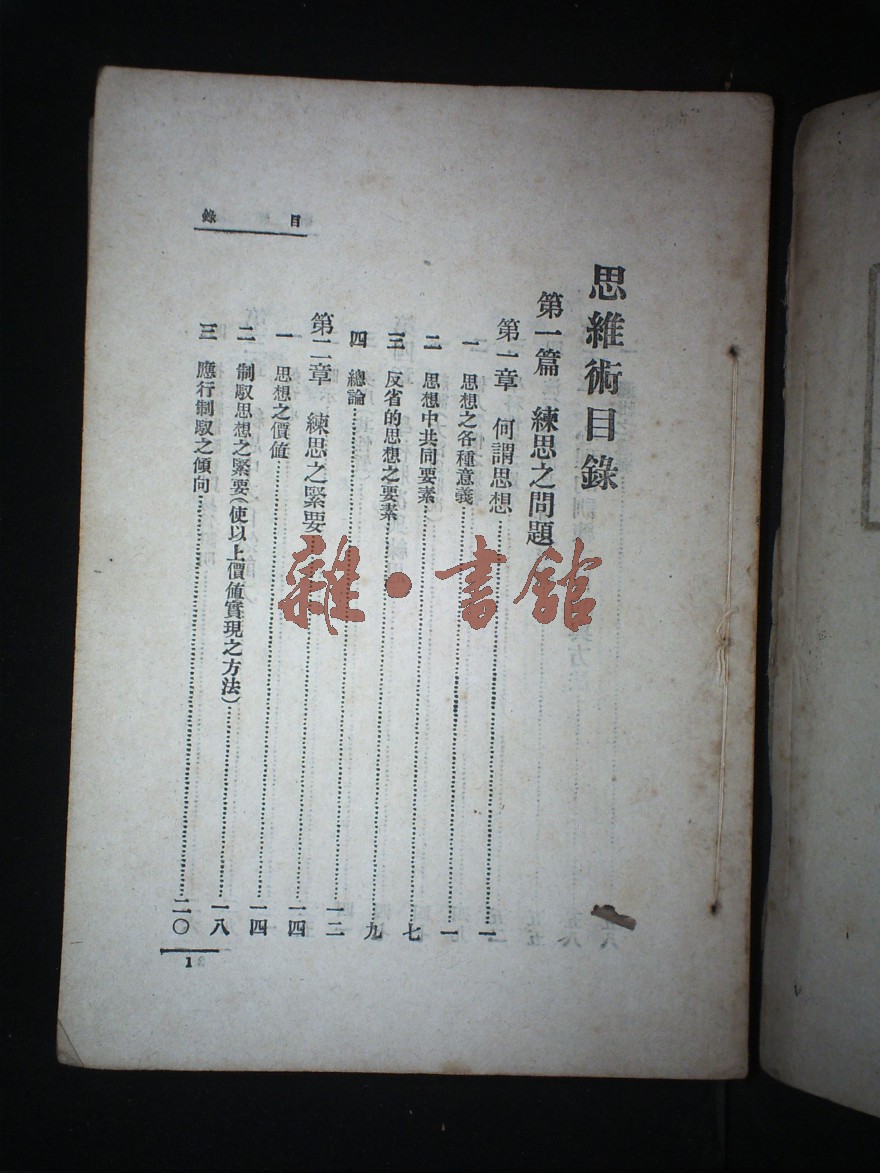 目錄
思維術目錄
第一篇 練思之問題
第一章 何謂思想……一
一 思想之各種意義……一
二 思想中共同要素……七
三 反省的思想之要素……九
四 總論……一二
第二章 練思之緊要……一四
一 思想之價值……一四
二 制馭思想之緊要(使以上價值實現之方法)……一八
三 應行制馭之傾向……二〇
1
雜·書館